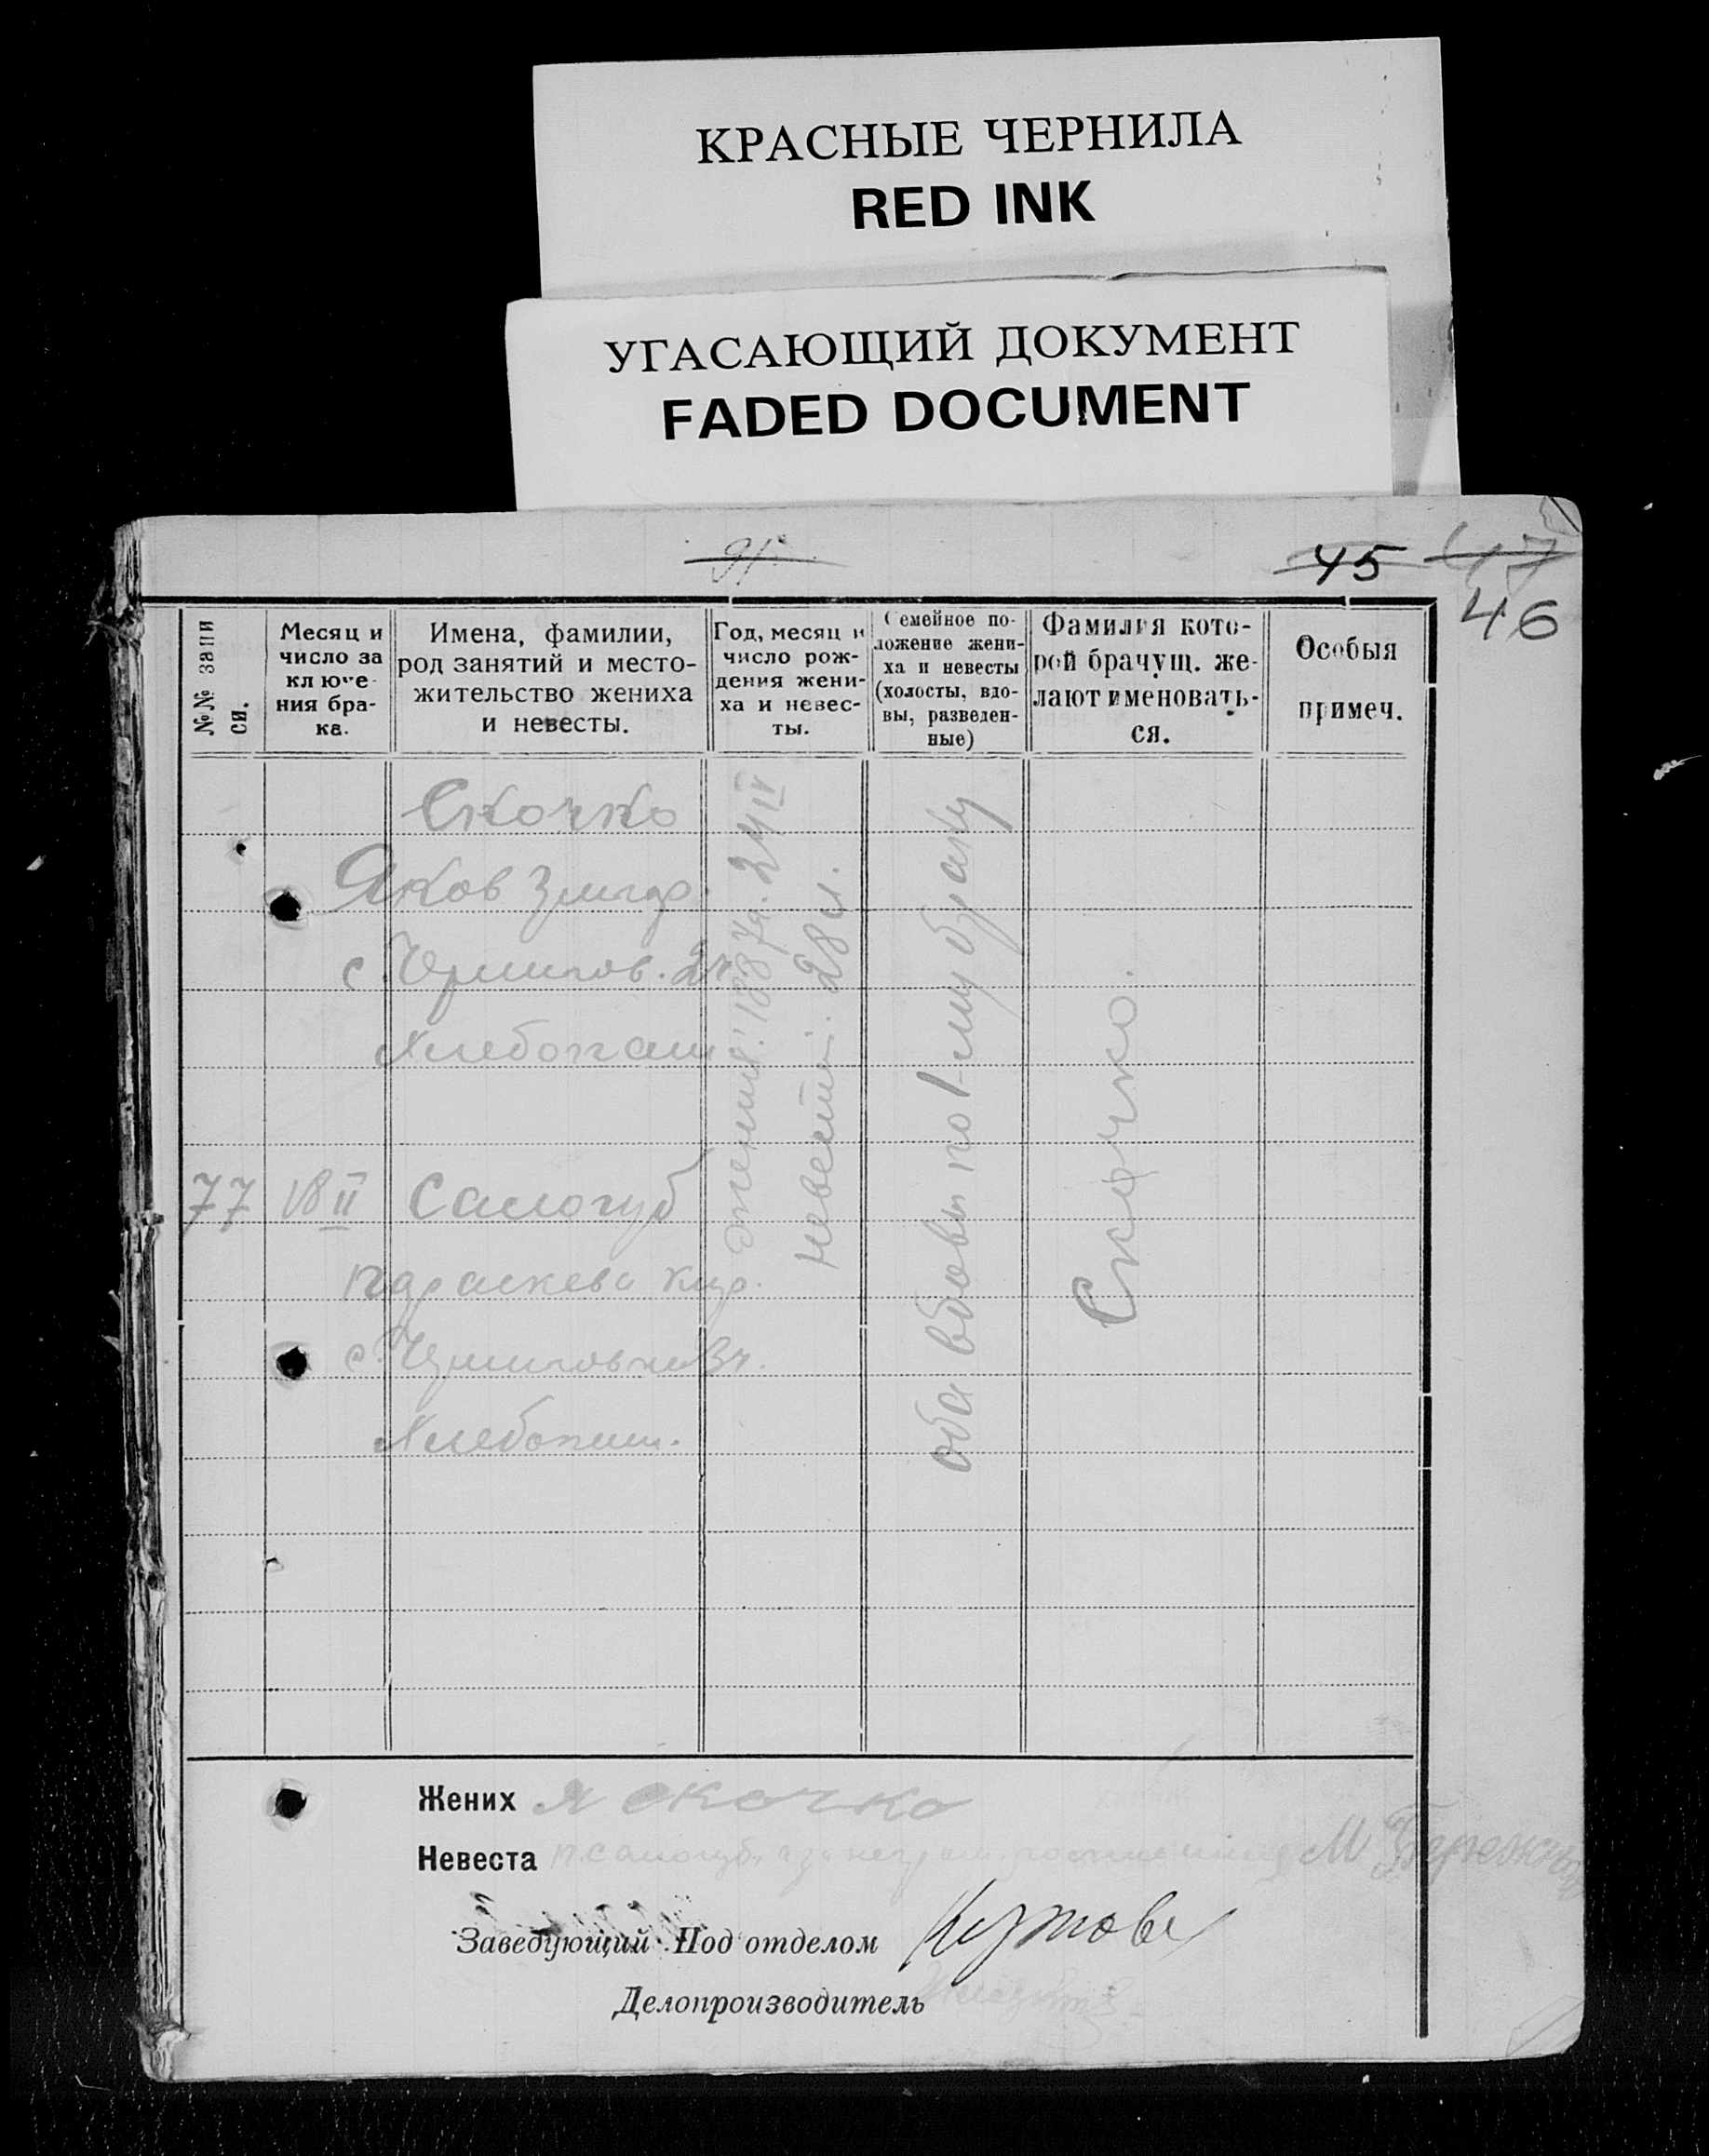 КРАСНЫЕ ЧЕРНИЛА
RED INK
УГАСАЮЩИЙ ДОКУМЕНТ
FADED DOCUMENT
91
45 47
46
№№ запи
си.
Месяц и
число за
ключе-
ния бра-
ка.
Имена, фамилии,
род занятий и место-
жительство жениха
и невесты.
Год, месяц и
число рож-
дения жени-
ха и невес-
ты.
Семейное по-
ложение жени-
ха и невесты
(холосты, вдо-
вы, разведен-
ные)
Фамилия кото-
рой брачущ. же-
лают именовать-
ся.
Особыя
примеч.
Скочко
Яков
с. 2ч.
Хлебопаш
77 18 II Самогуб
Параскева Кир.
с. 3ч.
Хлебопаш.
жениха 1887 г. 24 IV
невести 28 л.
оба вдовы по 1-му браку
Скочко.
Жених Я Скочко
Невеста П. Самогуб, а за неграм.
Заведующий Под отделом
Делопроизводитель